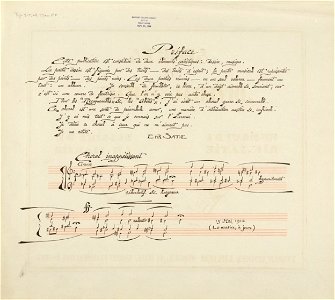 Préface
Cette publication est constituée de deux éléments artistiques: dessin, musique.
La partie dessin est figurée par des traits — des traits d'esprit; la partie musicale est représentée
par des points — des points noirs. Ces deux parties réunies — en un seul volume — forment un
tout: un album. Je conseille de feuilleter, ce livre, d'un doigt aimable & souriant, car
c'est ici une œuvre de fantaisie. Que l'on n'y voie pas autre chose.
Pour les "Recroquevillés" & les "Abêtis", j'ai écrit un choral grave & convenable.
Ce choral est une sorte de préambule amer, une manière d'introduction austère & infrivole.
J'y ai mis tout ce que je connais sur l'Ennui.
Je dédie ce choral à ceux qui ne m'aiment pas.
Je me retire.
ERIK SATIE
Choral inappétissant
Grave
15 Mai 1914
(Le matin, à jeun)